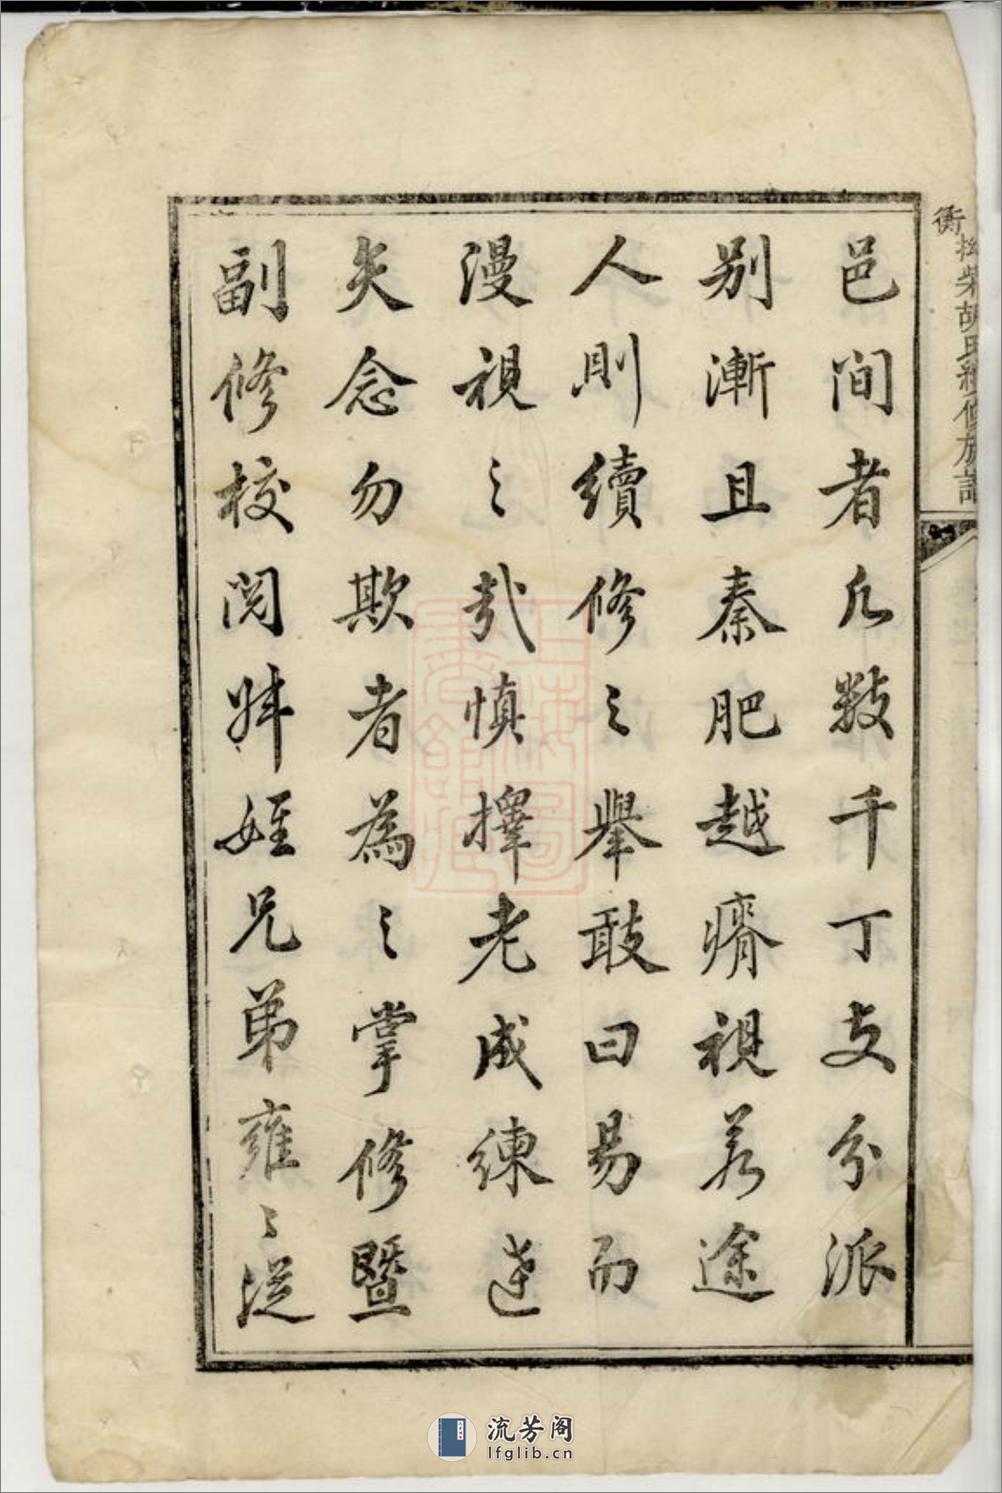 邑间者凡数千丁支分派
别漸且秦肥越瘠視若途
人則續修之舉敢曰易而
漫視之哉慎擇老成練达
矢念勿欺者為之掌修暨
副修校閱姪兄弟雍々從
衡 胡氏續修族譜
流芳阁
lfglib.cn